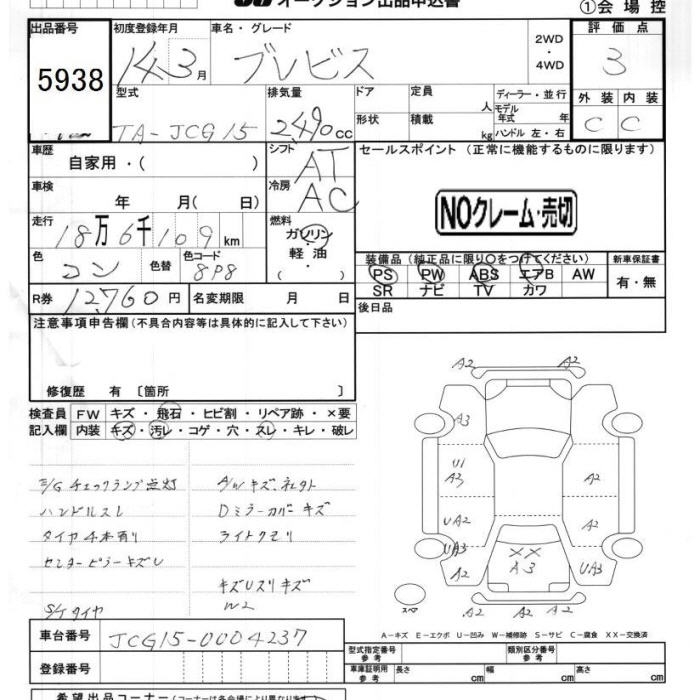 オークション出品申込書
①会場控
出品番号 初度登録年月 車名・グレード 評価点
5938 14 3月 ブレビス 2WD・4WD 3
型式 排気量 ドア 定員 人 ディーラー・並行 外装 内装
TA-JCG15 2490cc 形状 積載 kg モデル年式 年 ハンドル 左・右 C C
車歴 自家用・( ) シフト AT セールスポイント (正常に機能するものに限ります)
車検 年 月( 日) 冷房 AC NOクレーム・売切
走行 18万6千109km 燃料 ガソリン・軽油・( )
色 コン 色替 色コード 8P8
装備品 (純正品に限り○をつけてください) 新車保証書
PS PW ABS エアB AW 有・無
SR ナビ TV カワ
R券 12,760円 名変期限 月 日 後日品
注意事項申告欄 (不具合内容等は具体的に記入して下さい)
修復歴 有 〔箇所 〕
検査員 FW キズ・飛石・ヒビ割・リペア跡・×要
記入欄 内装 キズ・汚レ・コゲ・穴・スレ・キレ・破レ
E/Gチェックランプ点灯 A/Wキズ、
ハンドルスレ Dミラーカバーキズ
タイヤ4本有り ライトクモリ
センターピラーキズU
キズUスリキズ
S/Tタイヤ W2
A2 A2
A3
U1
A3 A2
UA2 A2
UA3 XX
A2 A3 UA3
スペア A2 A2
A-キズ E-エクボ U-凹み W-補修跡 S-サビ C-腐食 XX-交換済
車台番号 JCG15-0004237
型式指定番号 参考 類別区分番号 参考
登録番号 車庫証明用 参考 長さ cm 幅 cm 高さ cm
希望出品コーナー